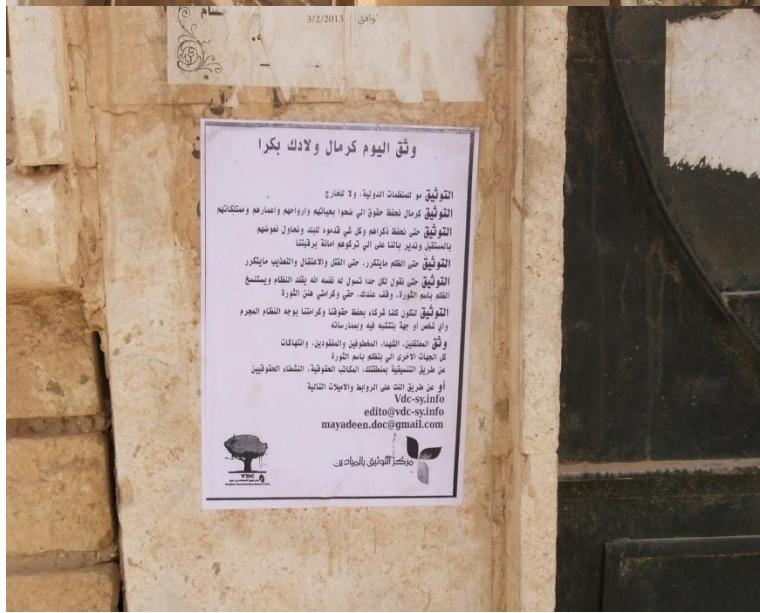 وافق 3/2/2013
وثق اليوم كرمال ولادك بكرا
التوثيق مو للمنظمات الدولية، ولا للخارج
التوثيق كرمال نحفظ حقوق الي ضحوا بحياتهم وارواحهم واعمارهم وممتلكاتهم
التوثيق حتى نحفظ ذكراهم وكل شي قدموه للبلد ونحاول نعوضهم
بالمستقبل وندير بالنا على الي تركوهم امانة برقبتنا
التوثيق حتى الظلم مايتكرر، حتى القتل والاعتقال والتعذيب مايتكرر
التوثيق حتى نقول لكل حدا تسول له نفسه انه يقلد النظام ويستنسخ
الظلم بأسم الثورة، وقف عندك، حقي وكرامتي هنن الثورة
التوثيق لنكون كلنا شركاء بحفظ حقوقنا وكرامتنا بوجه النظام المجرم
وأي شخص أو جهة بتتشبه فيه وبممارساته
وثق المعتقلين، الشهداء، المخطوفين والمفقودين، وانتهاكات
كل الجهات الاخرى الي بتظلم بأسم الثورة
عن طريق التنسيقية بمنطقتك، المكاتب الحقوقية، النشطاء الحقوقيين
أو عن طريق النت على الروابط والاميلات التالية
Vdc-sy.info
edito@vdc-sy.info
mayadeen.doc@gmail.com
مركز التوثيق بالميادين
VDC